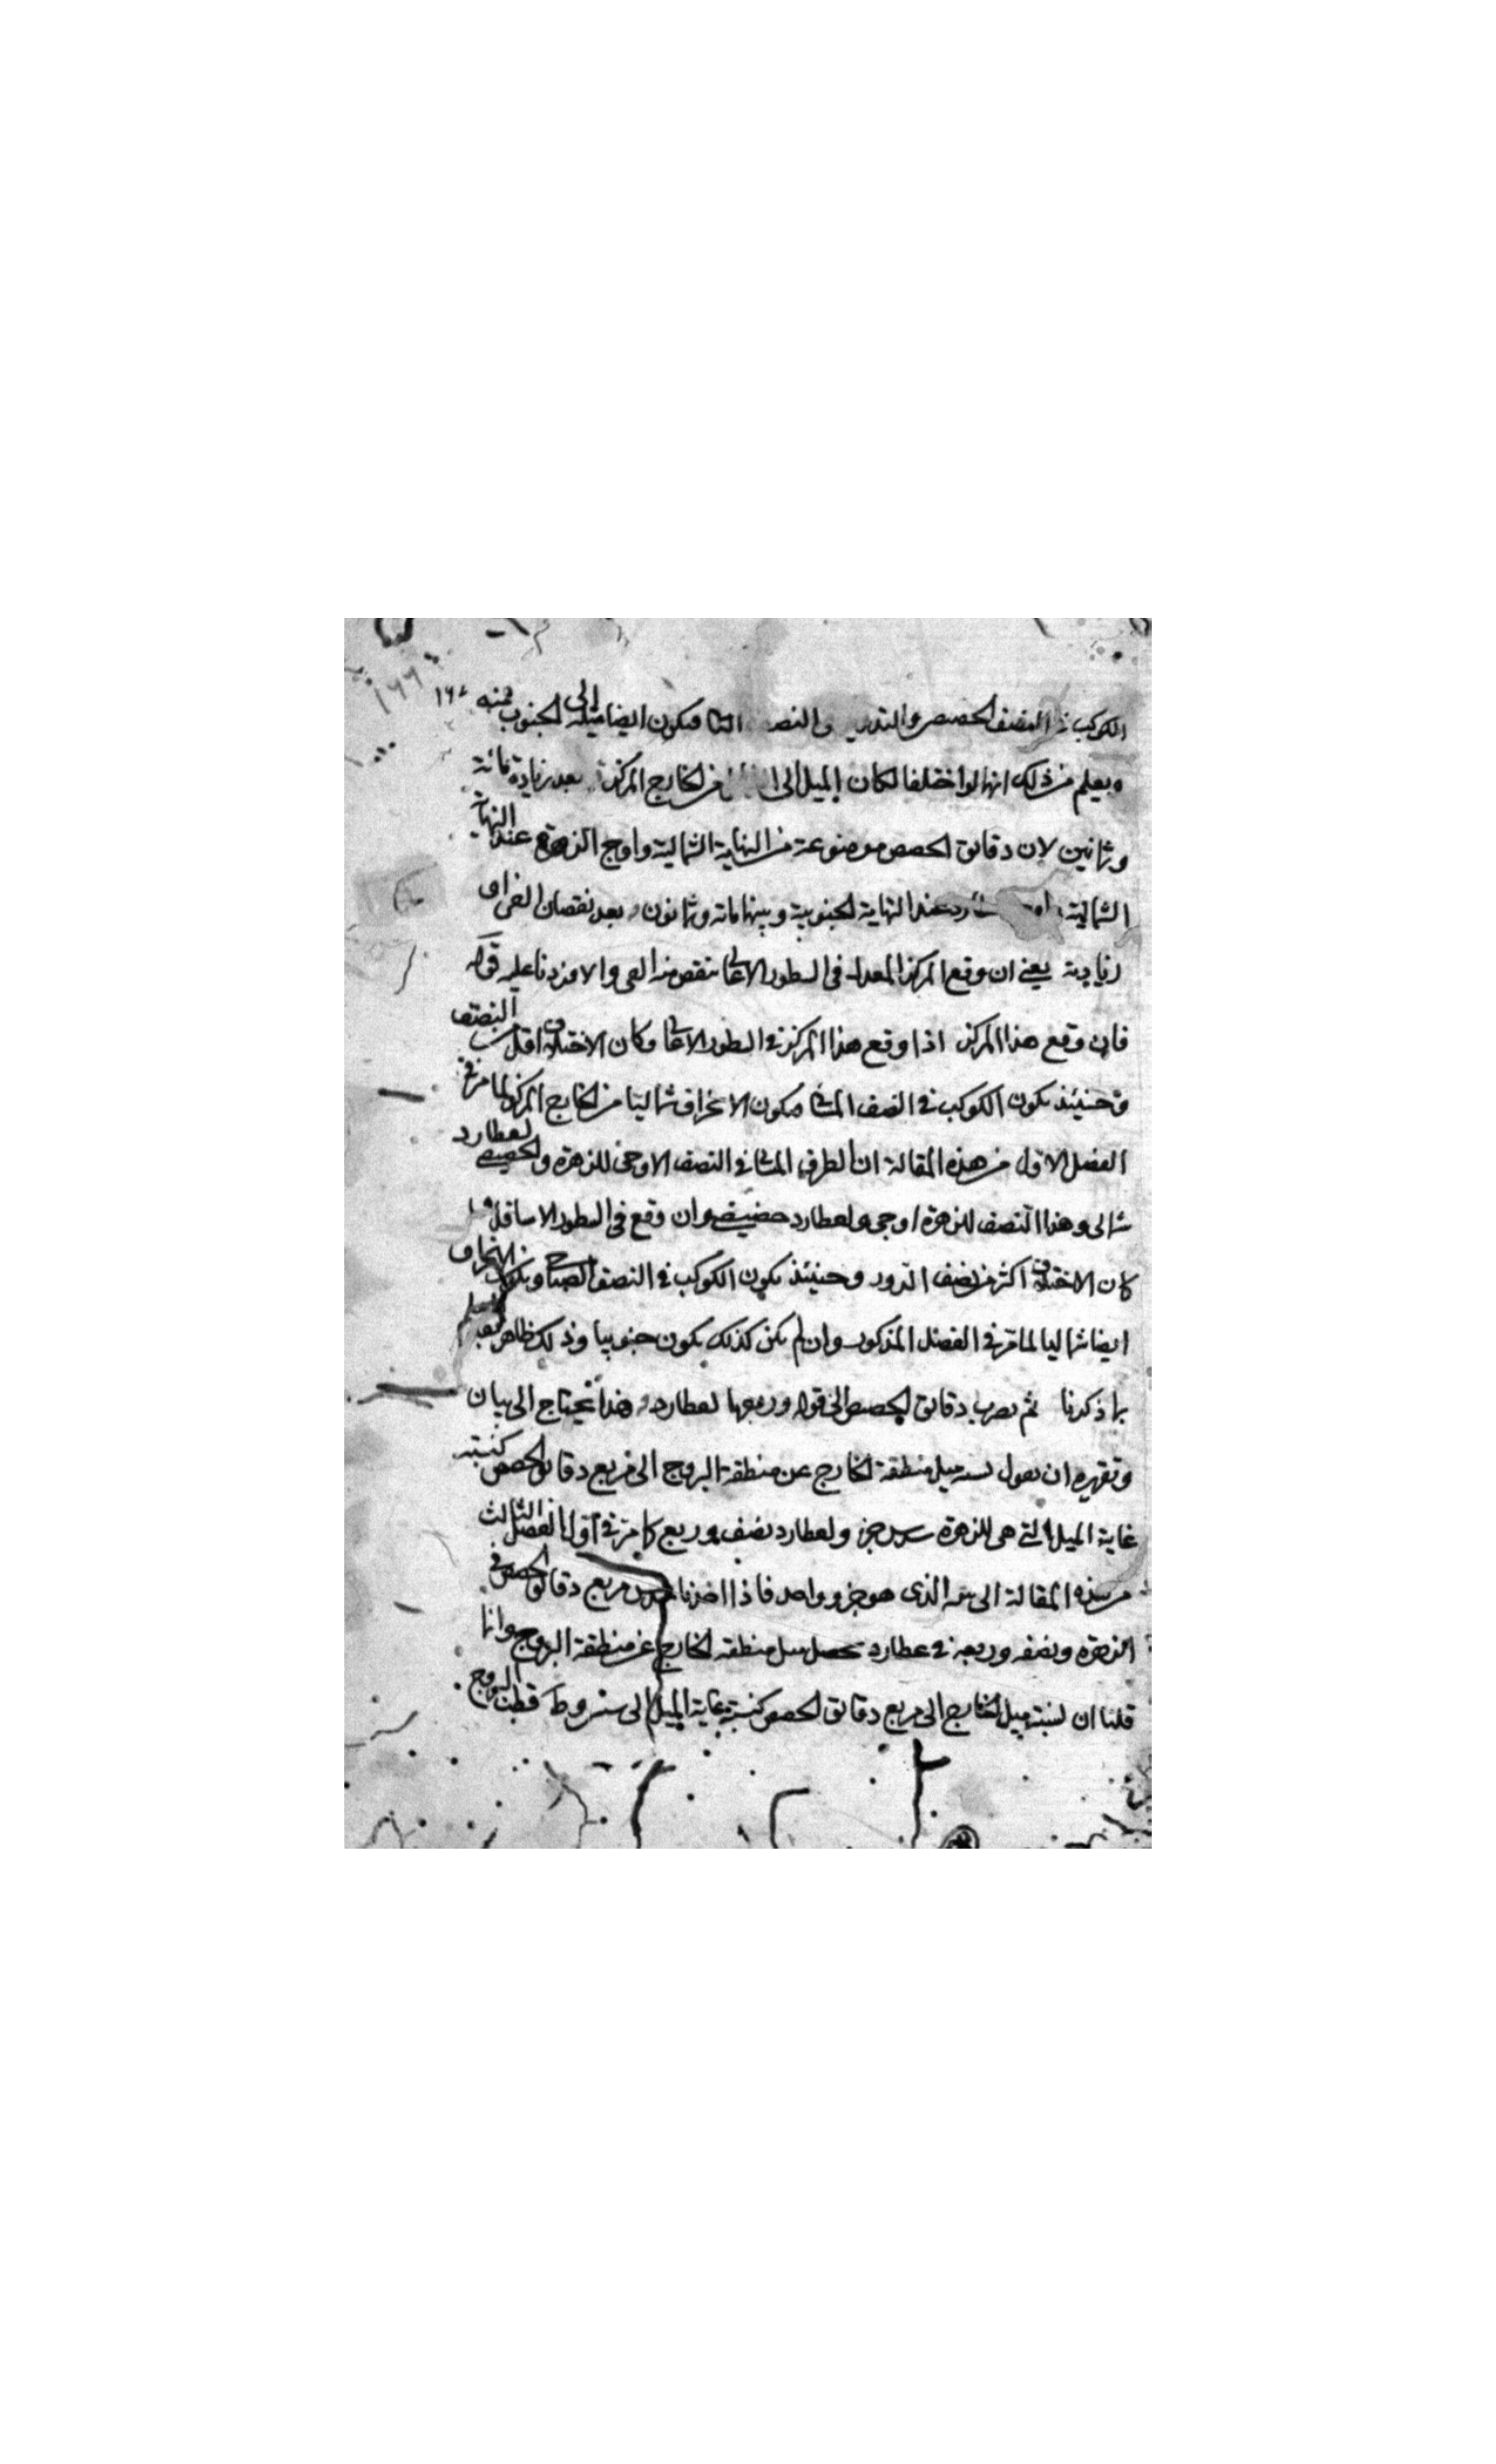 الكوكب في النصف الحضيضي والتدوير والنصف فيكون ايضا ميله الى الجنوب فمنه ١٦٧
ويعلم من ذلك انهما لو اختلفا لكان الميل الى عن الخارج المركز بعد زيادة مائة
وثمانين لان دقائق الحصص موضوعة من النهاية الشمالية واوج الزهرة عند النهاية
الشمالية عند النهاية الجنوبية وبينهما مائة وثمانون بعد نقصان
او زيادته يعني ان وقع المركز المعدل في السطور الاعالي ننقص منه والا فزدنا عليه قوله
فان وقع هذا المركز اذا وقع هذا المركز في السطور الاعالي وكان الاختلاف اقل من النصف
وحينئذ يكون الكوكب في النصف المسائي فيكون الانحراف شماليا من الخارج المركز لما مر في
الفصل الاول من هذه المقالة ان الطرف المسائي في النصف الاوجي للزهرة والحضيضي لعطارد
شمالي وهذا النصف للزهرة اوجي ولعطارد حضيضي وان وقع في السطور الاسافل
كان الاختلاف اكثر من نصف الدور وحينئذ يكون الكوكب في النصف الصباحي ويكون الانحراف
ايضا شماليا لما مر في الفصل المذكور وان لم يكن كذلك يكون جنوبيا وذلك ظاهر
بما ذكرنا ثم نضرب دقائق الحصص الى قوله وربعها لعطارد هذا يحتاج الى بيان
وتقريره ان نقول نسبة ميل منطقة الخارج عن منطقة البروج الى مربع دقائق الحصص كنسبة
غاية الميل التي هي للزهرة سدس جزء ولعطارد نصف وربع كما مر في اول الفصل الثالث
من هذه المقالة الى الذي هو جزء واحد فاذا اخذنا سدس مربع دقائق الحصص في
الزهرة ونصفه وربعه في عطارد حصل ميل منطقة الخارج عن منطقة البروج وانما
قلنا ان نسبة ميل الخارج الى مربع دقائق الحصص كنسبة غاية الميل الى قطب البروج